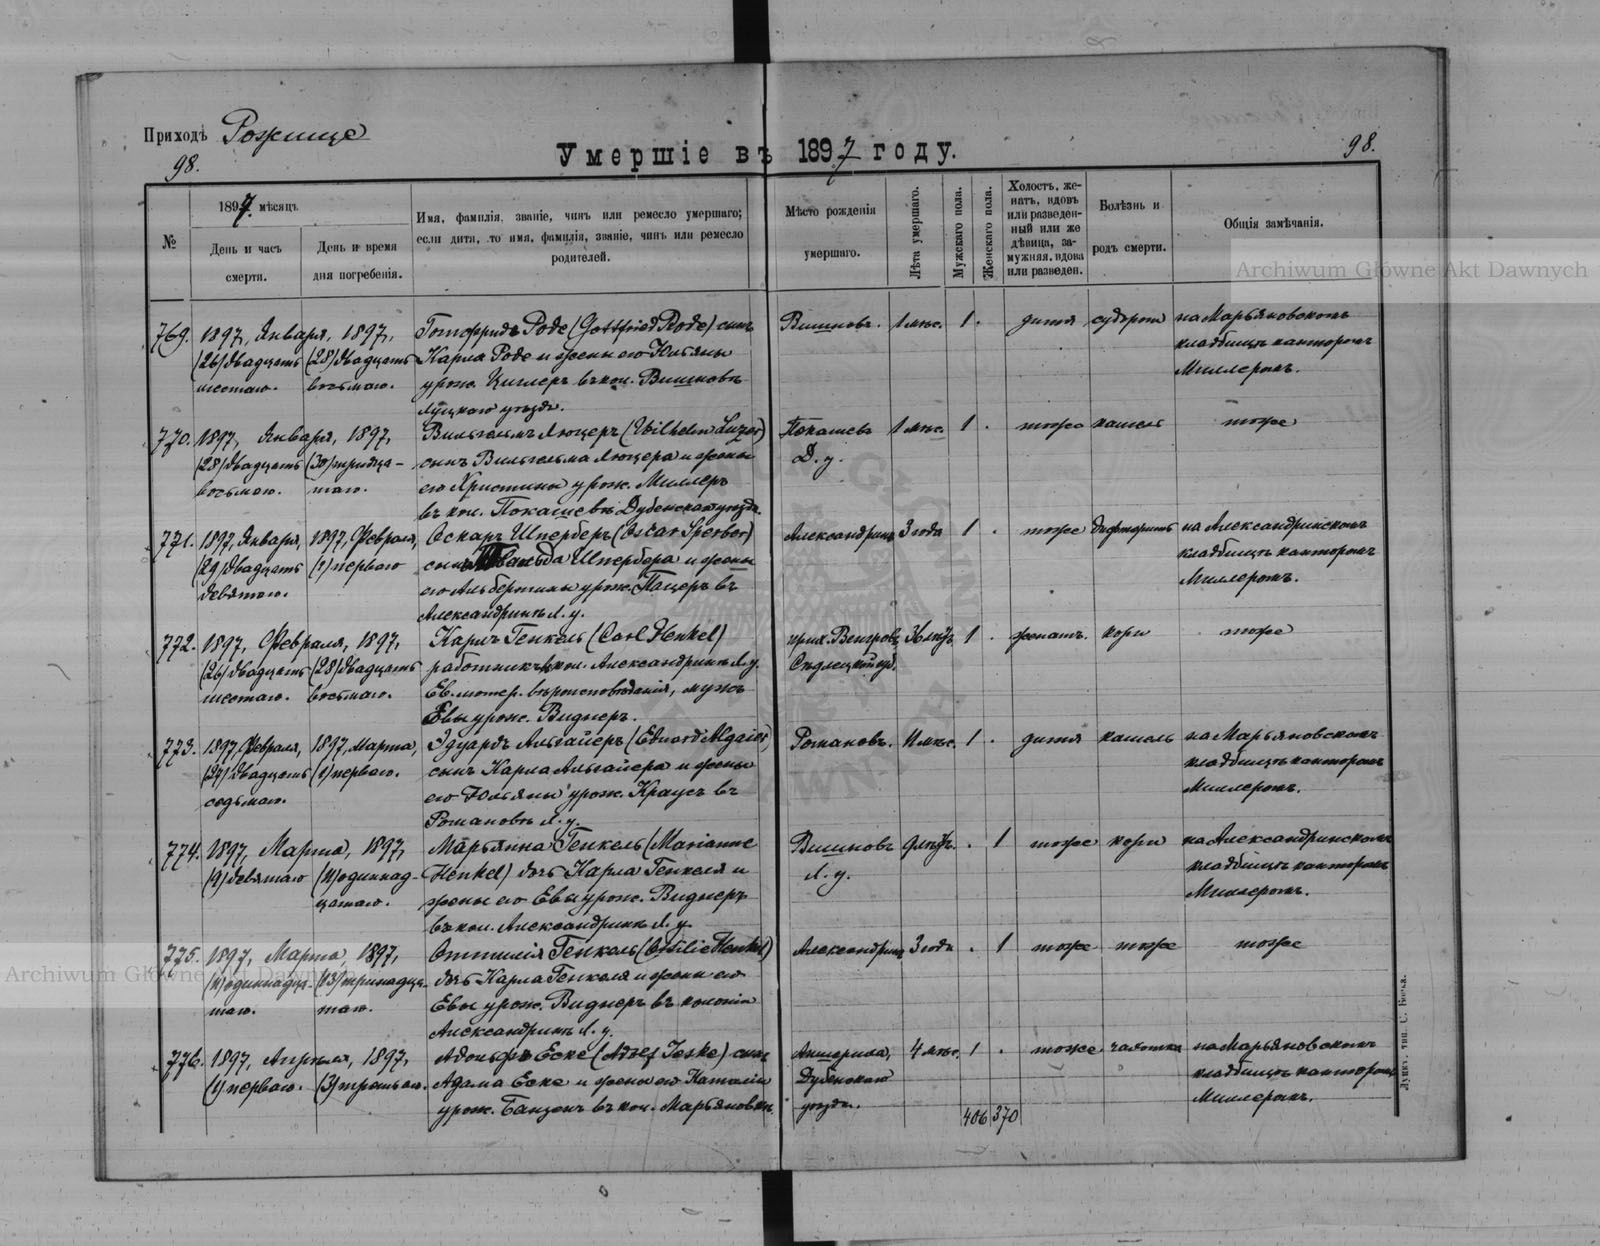 Приходъ Рожище
98.
Умершіе въ 1897 году.
98.
№
1897 мѣсяцъ
День и часъ смерти.
День и время дня погребенія.
Имя, фамилія, званіе, чинъ или ремесло умершаго;
если дитя, то имя, фамилія, званіе, чинъ или ремесло
родителей.
Мѣсто рожденія
умершаго.
Лѣта умершаго.
Мужскаго пола.
Женскаго пола.
Холостъ, же-
натъ, вдовъ
или разведен-
ный или же
дѣвица, за-
мужняя, вдова
или разведен.
Болѣзнь и
родъ смерти.
Общія замѣчанія.
Archiwum Główne Akt Dawnych
769. 1897, Января, 1897, Готфридъ Роде (Gottfried Rode) сынъ Вишневъ. 1 мѣс. 1 . дитя судороги на Марьяновскомъ
(26) двадцать (28) двадцать Карла Роде и жены его Юльяны кладбищѣ канторомъ
шестаго. восьмаго. урож. Циглеръ въ кол. Вишневѣ Миллеромъ.
Луцкаго уѣзда.
770. 1897, Января, 1897, Вильгельмъ Люцеръ (Wilhelm Luzer) Покащевъ 1 мѣс. 1 . тоже кашель тоже
(28) двадцать (30) тридца- сынъ Вильгельма Люцера и жены Д. у.
восьмаго. таго. его Христины урож. Миллеръ
въ кол. Покащевѣ Дубенскаго уѣзда.
771. 1897, Января, 1897, Февраля, Оскаръ Шперберъ (Oscar Sperber) Александринъ 3 года 1 . тоже дифтеритъ на Александринскомъ
(29) двадцать (1) перваго сынъ Шпербера и жены кладбищѣ канторомъ
девятаго. его Альбертины урож. Пацеръ въ Миллеромъ.
Александринѣ Л. у.
772. 1897, Февраля, 1897, Карлъ Генкель (Carl Henkel) прих. Венгровъ 36 лѣтъ 1 . женатъ. кори тоже
(26) двадцать (28) двадцать работникъ въ кол. Александринѣ Л. у. Сѣдлецкой губ.
шестаго. восьмаго. Ев. лютер. вѣроисповѣданія, мужъ
Евы урож. Видмеръ.
773. 1897, Февраля, 1897, Марта, Эдуардъ Альгайеръ (Eduard Algaier) Романовъ. 11 мѣс. 1 . дитя кашель на Марьяновскомъ
(27) двадцать (1) перваго. сынъ Карла Альгайера и жены кладбищѣ канторомъ
седьмаго. его Юльяны урож. Краузъ въ Миллеромъ.
Романовѣ Л. у.
774. 1897, Марта, 1897, Марьянна Генкель (Marianne Вишневъ 9 лѣтъ. . 1 тоже кори на Александринскомъ
(9) девятаго (11) одиннад- Henkel) дочь Карла Генкеля и Л. у. кладбищѣ канторомъ
цатаго. жены его Евы урож. Видмеръ Миллеромъ.
въ кол. Александринѣ Л. у.
775. 1897, Марта, 1897, Оттилія Генкель (Ottilie Henkel) Александринъ 3 года . 1 тоже тоже тоже
Archiwum Główne Akt Dawnych
(11) одиннадца- (13) тринадца- дочь Карла Генкеля и жены его
таго. таго. Евы урож. Видмеръ въ колоніи
Александринѣ Л. у.
776. 1897, Апрѣля, 1897, Адольфъ Еске (Adolf Jeske) сынъ 4 мѣс. 1 . тоже чахотка на Марьяновскомъ
(1) перваго. (3) третьяго. Адама Еске и жены его Наталіи Дубенскаго кладбищѣ канторомъ
урож. Банцекъ въ кол. Марьяновкѣ. уѣзда. Миллеромъ.
406 370
Луцкъ, тип.